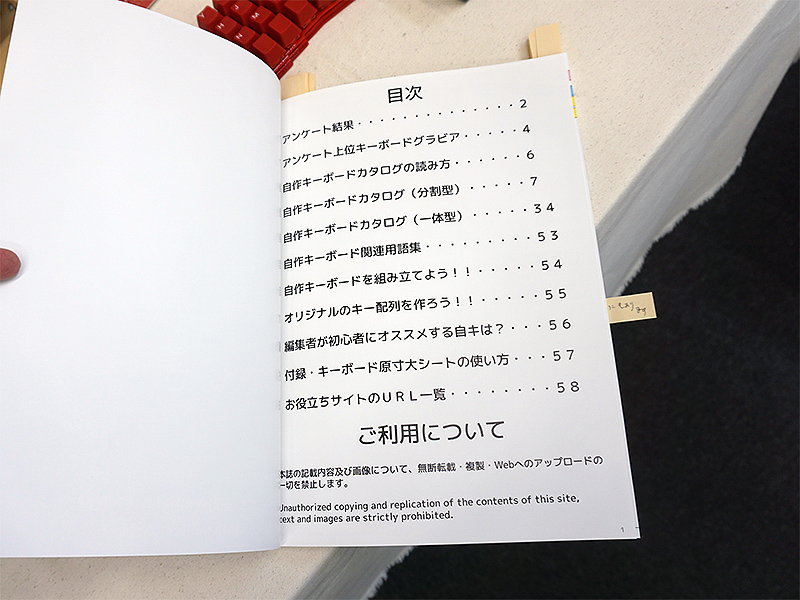 目次
アンケート結果・・・・・・・・・・・・・・2
アンケート上位キーボードグラビア・・・・・4
自作キーボードカタログの読み方・・・・・・6
自作キーボードカタログ（分割型）・・・・・7
自作キーボードカタログ（一体型）・・・・・34
自作キーボード関連用語集・・・・・・・・・53
自作キーボードを組み立てよう！！・・・・・54
オリジナルのキー配列を作ろう！！・・・・・55
編集者が初心者にオススメする自キは？・・・56
付録・キーボード原寸大シートの使い方・・・57
お役立ちサイトのＵＲＬ一覧・・・・・・・・58
ご利用について
本誌の記載内容及び画像について、無断転載・複製・Webへのアップロードの
一切を禁止します。
Unauthorized copying and replication of the contents of this site,
text and images are strictly prohibited.
1
Y
H
J
N
M